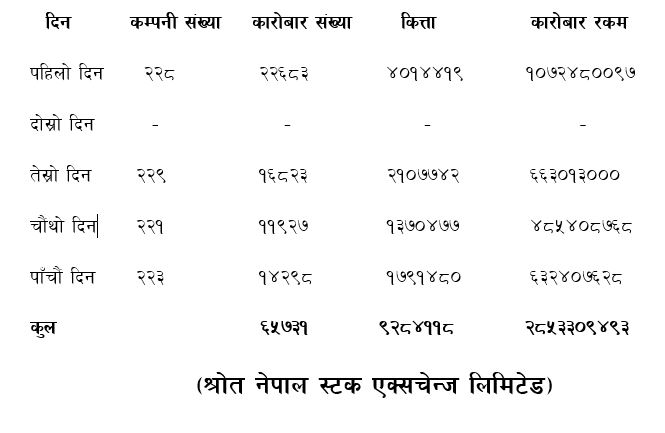 दिन कम्पनी संख्या कारोबार संख्या कित्ता कारोबार रकम
पहिलो दिन २२८ २२६८३ ४०१४४१९ १०७२४८००९७
दोस्रो दिन - - - -
तेस्रो दिन २२९ १६८२३ २१०७७४२ ६६३०१३०००
चौंथो दिन २२१ ११९२७ १३७०४७७ ४८५४०८७६८
पाँचौं दिन २२३ १४२९८ १७९१४८० ६३२४०७६२८
कुल ६५७३१ ९२८४११८ २८५३३०९४९३
(श्रोत नेपाल स्टक एक्सचेन्ज लिमिटेड)